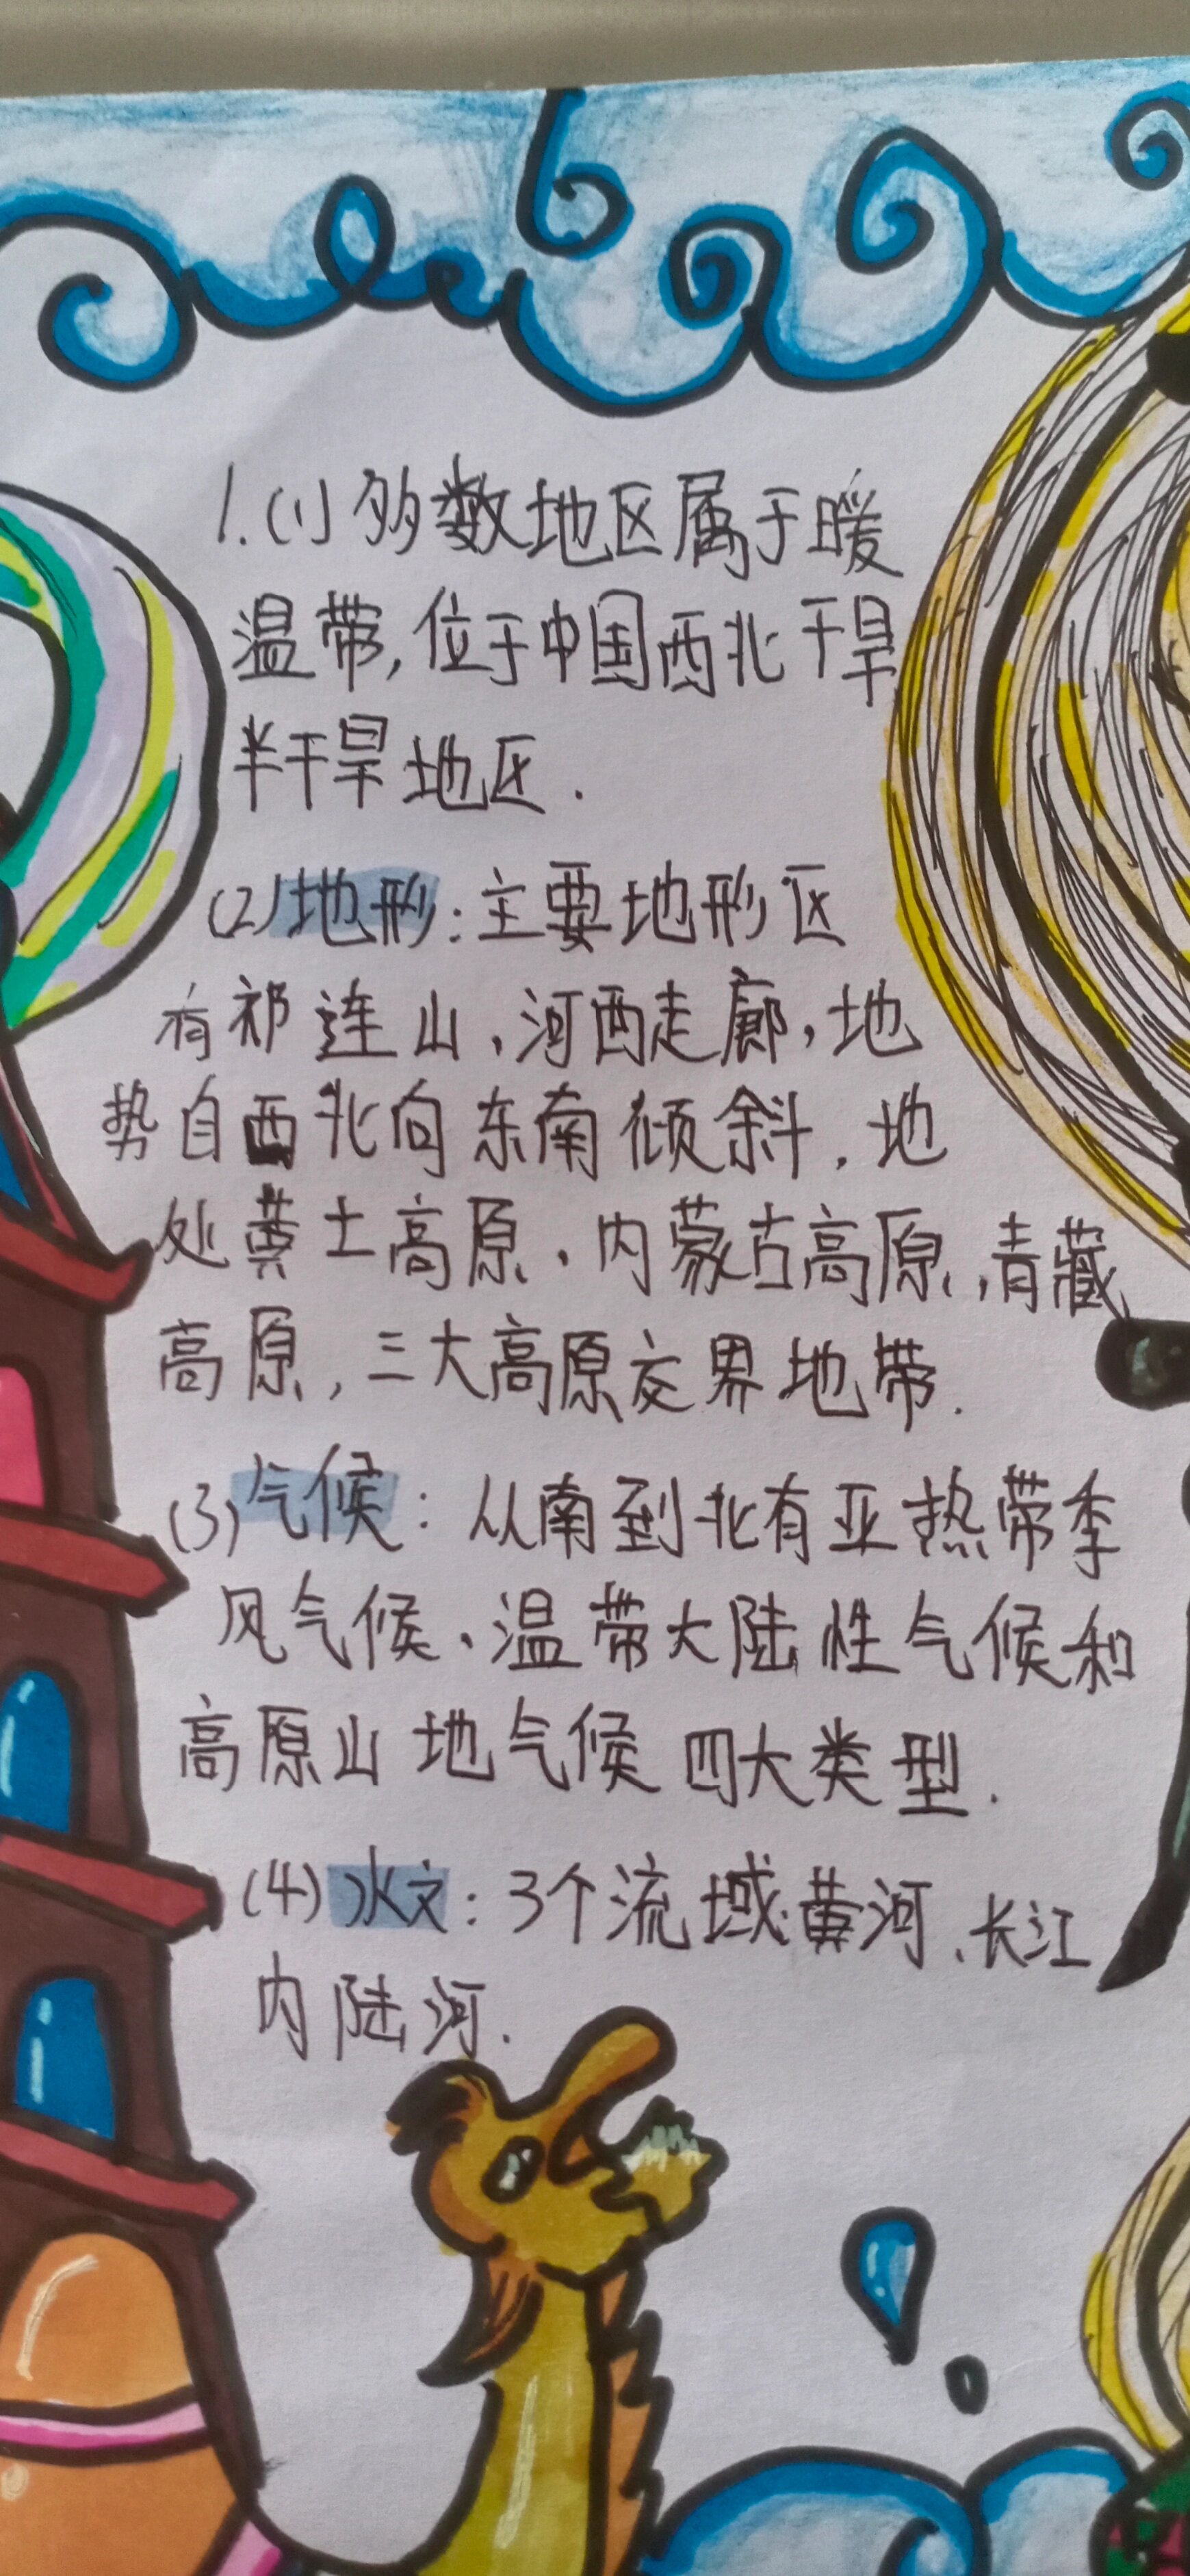 1.(1)多数地区属于暖
温带,位于中国西北干旱
半干旱地区.
(2)地形:主要地形区
有祁连山,河西走廊,地
势自西北向东南倾斜.地
处黄土高原、内蒙古高原,青藏
高原,三大高原交界地带.
(3)气候:从南到北有亚热带季
风气候、温带大陆性气候和
高原山地气候四大类型.
(4)水文:3个流域:黄河、长江
内陆河.